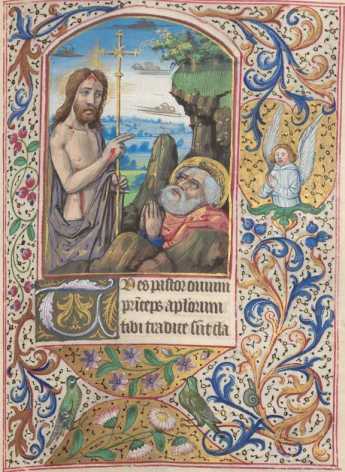 Tu es pastor ouium
princeps aplorum
tibi tradite sūt cla